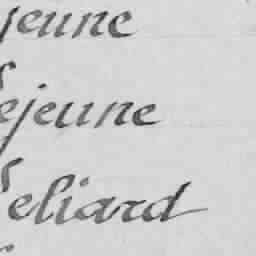 jeune
ejeune
eliard